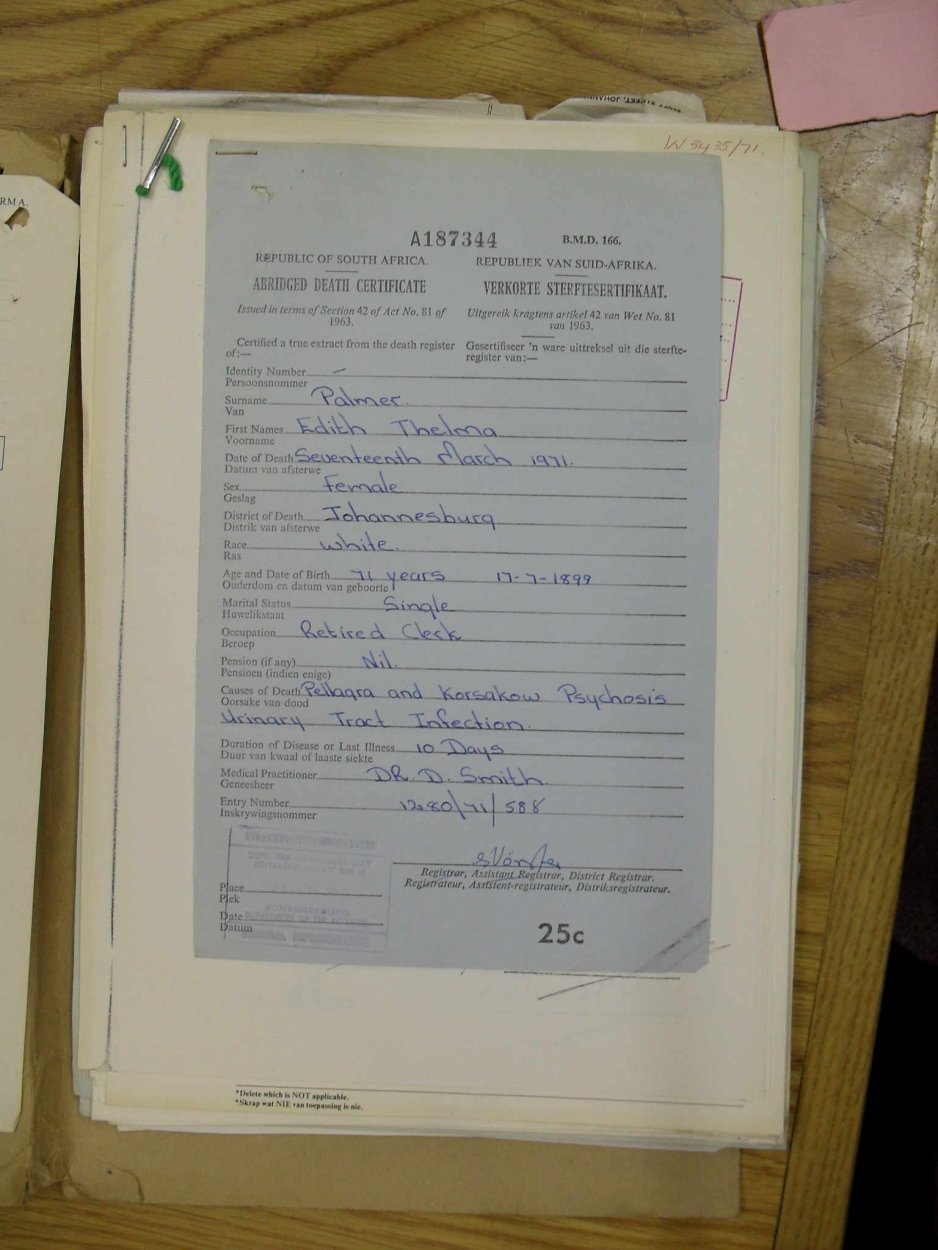 STREET, JOHANN
W 5435/71.
RMA.
A187344 B.M.D. 166.
REPUBLIC OF SOUTH AFRICA. REPUBLIEK VAN SUID-AFRIKA.
ABRIDGED DEATH CERTIFICATE VERKORTE STERFTESERTIFIKAAT.
Issued in terms of Section 42 of Act No. 81 of Uitgereik kragtens artikel 42 van Wet No. 81
1963. van 1963.
Certified a true extract from the death register Gesertifiseer 'n ware uittreksel uit die sterfte-
of:— register van:—
Identity Number –
Persoonsnommer
Surname Palmer.
Van
First Names Edith Thelma
Voorname
Date of Death Seventeenth March 1971.
Datum van afsterwe
Sex Female
Geslag
District of Death Johannesburg
Distrik van afsterwe
Race White.
Ras
Age and Date of Birth 71 years 17-7-1899
Ouderdom en datum van geboorte
Marital Status Single
Huwelikstaat
Occupation Retired Clerk
Beroep
Pension (if any) Nil.
Pensioen (indien enige)
Causes of Death Pellagra and Korsakow Psychosis
Oorsake van dood
Urinary Tract Infection.
Duration of Disease or Last Illness 10 Days
Duur van kwaal of laaste siekte
Medical Practitioner DR. D. Smith.
Geneesheer
Entry Number 1280/71/588
Inskrywingsnommer
Registrar, Assistant Registrar, District Registrar.
Registrateur, Assistent-registrateur, Distriksregistrateur,
Place
Plek
Date
Datum
25c
*Delete which is NOT applicable.
*Skrap wat NIE van toepassing is nie.